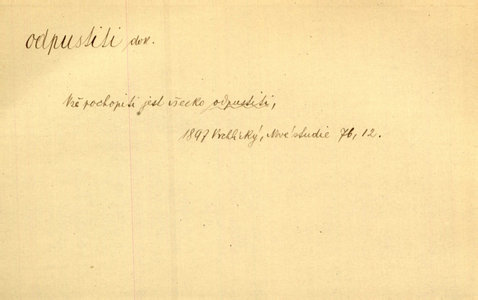 odpustiti, dok.
Vše pochopiti jest všecko odpustiti,
1897 Vrchlický, Nové studie 76, 12.